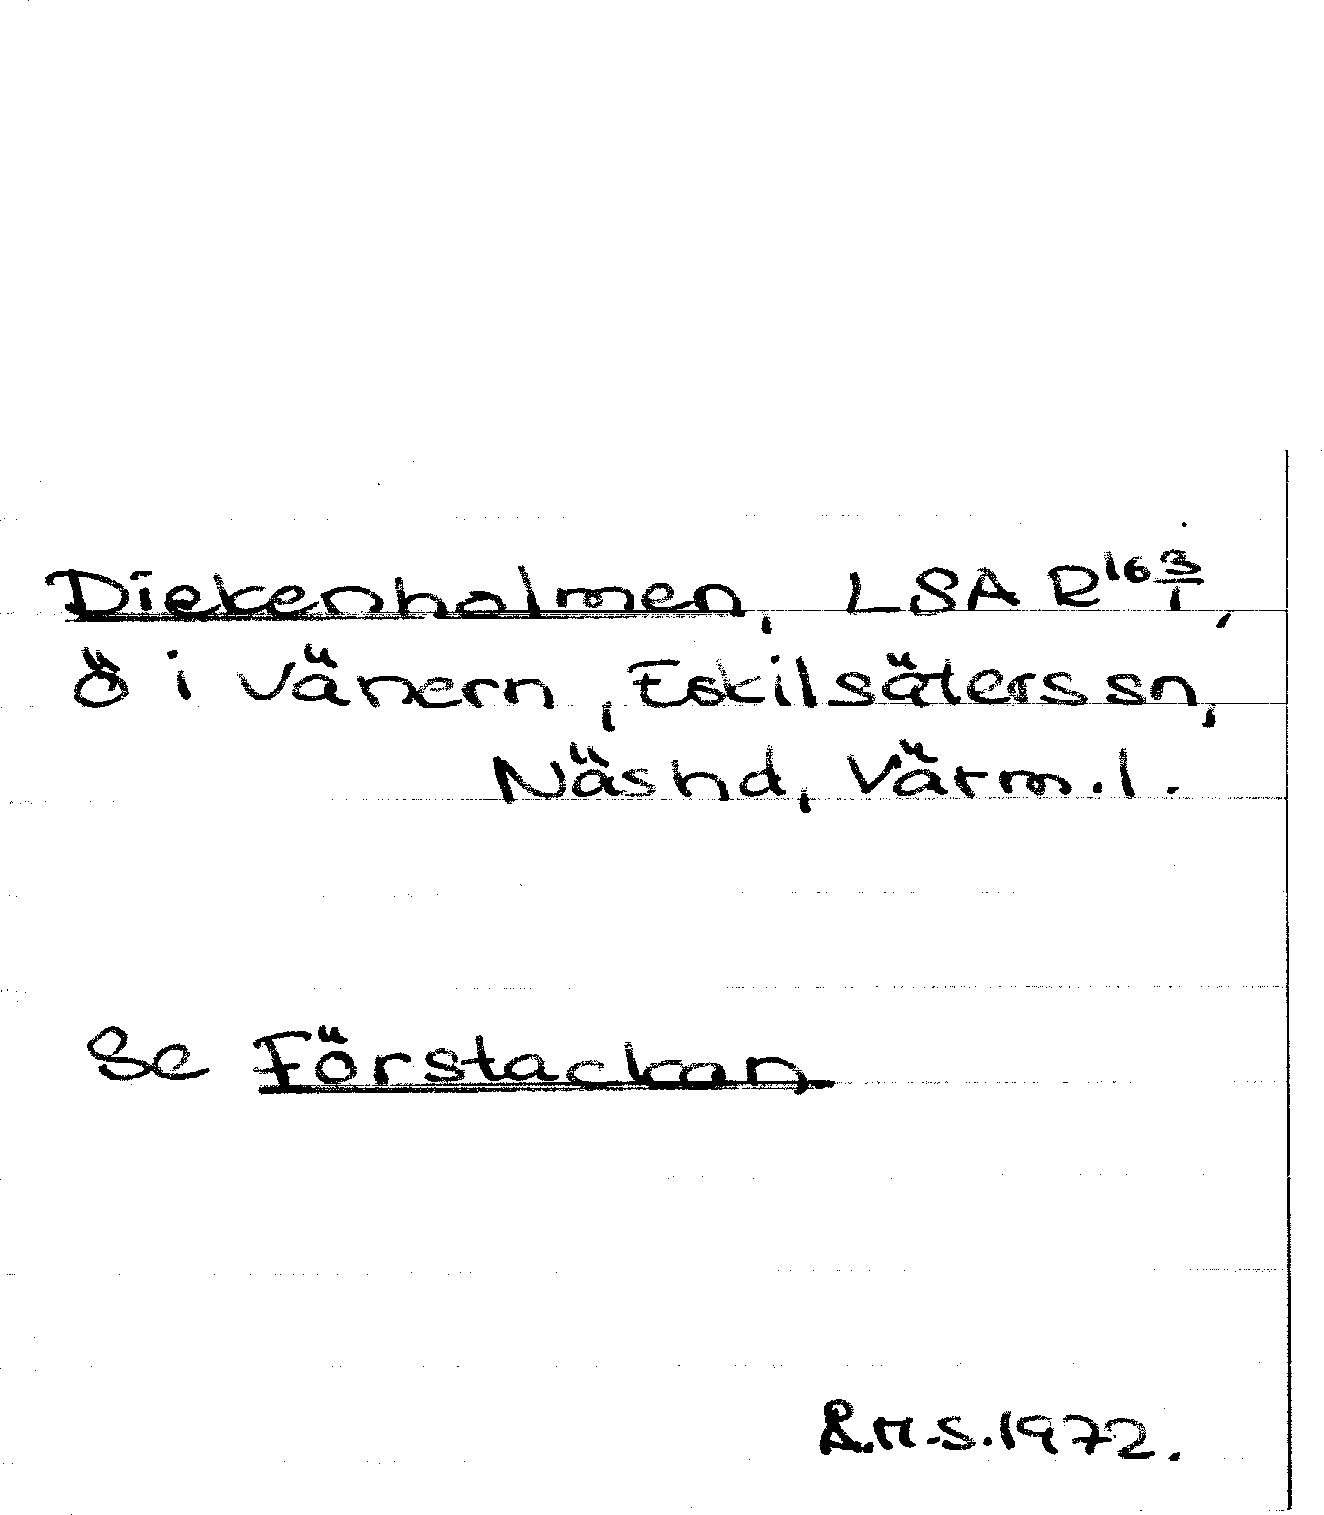 Diekenholmen, LSA R16 3/1,
ö i Vänern, Eskilsäterssn,
Näshd, Värm.l.
Se Förstackan
Å.M.S.1972.